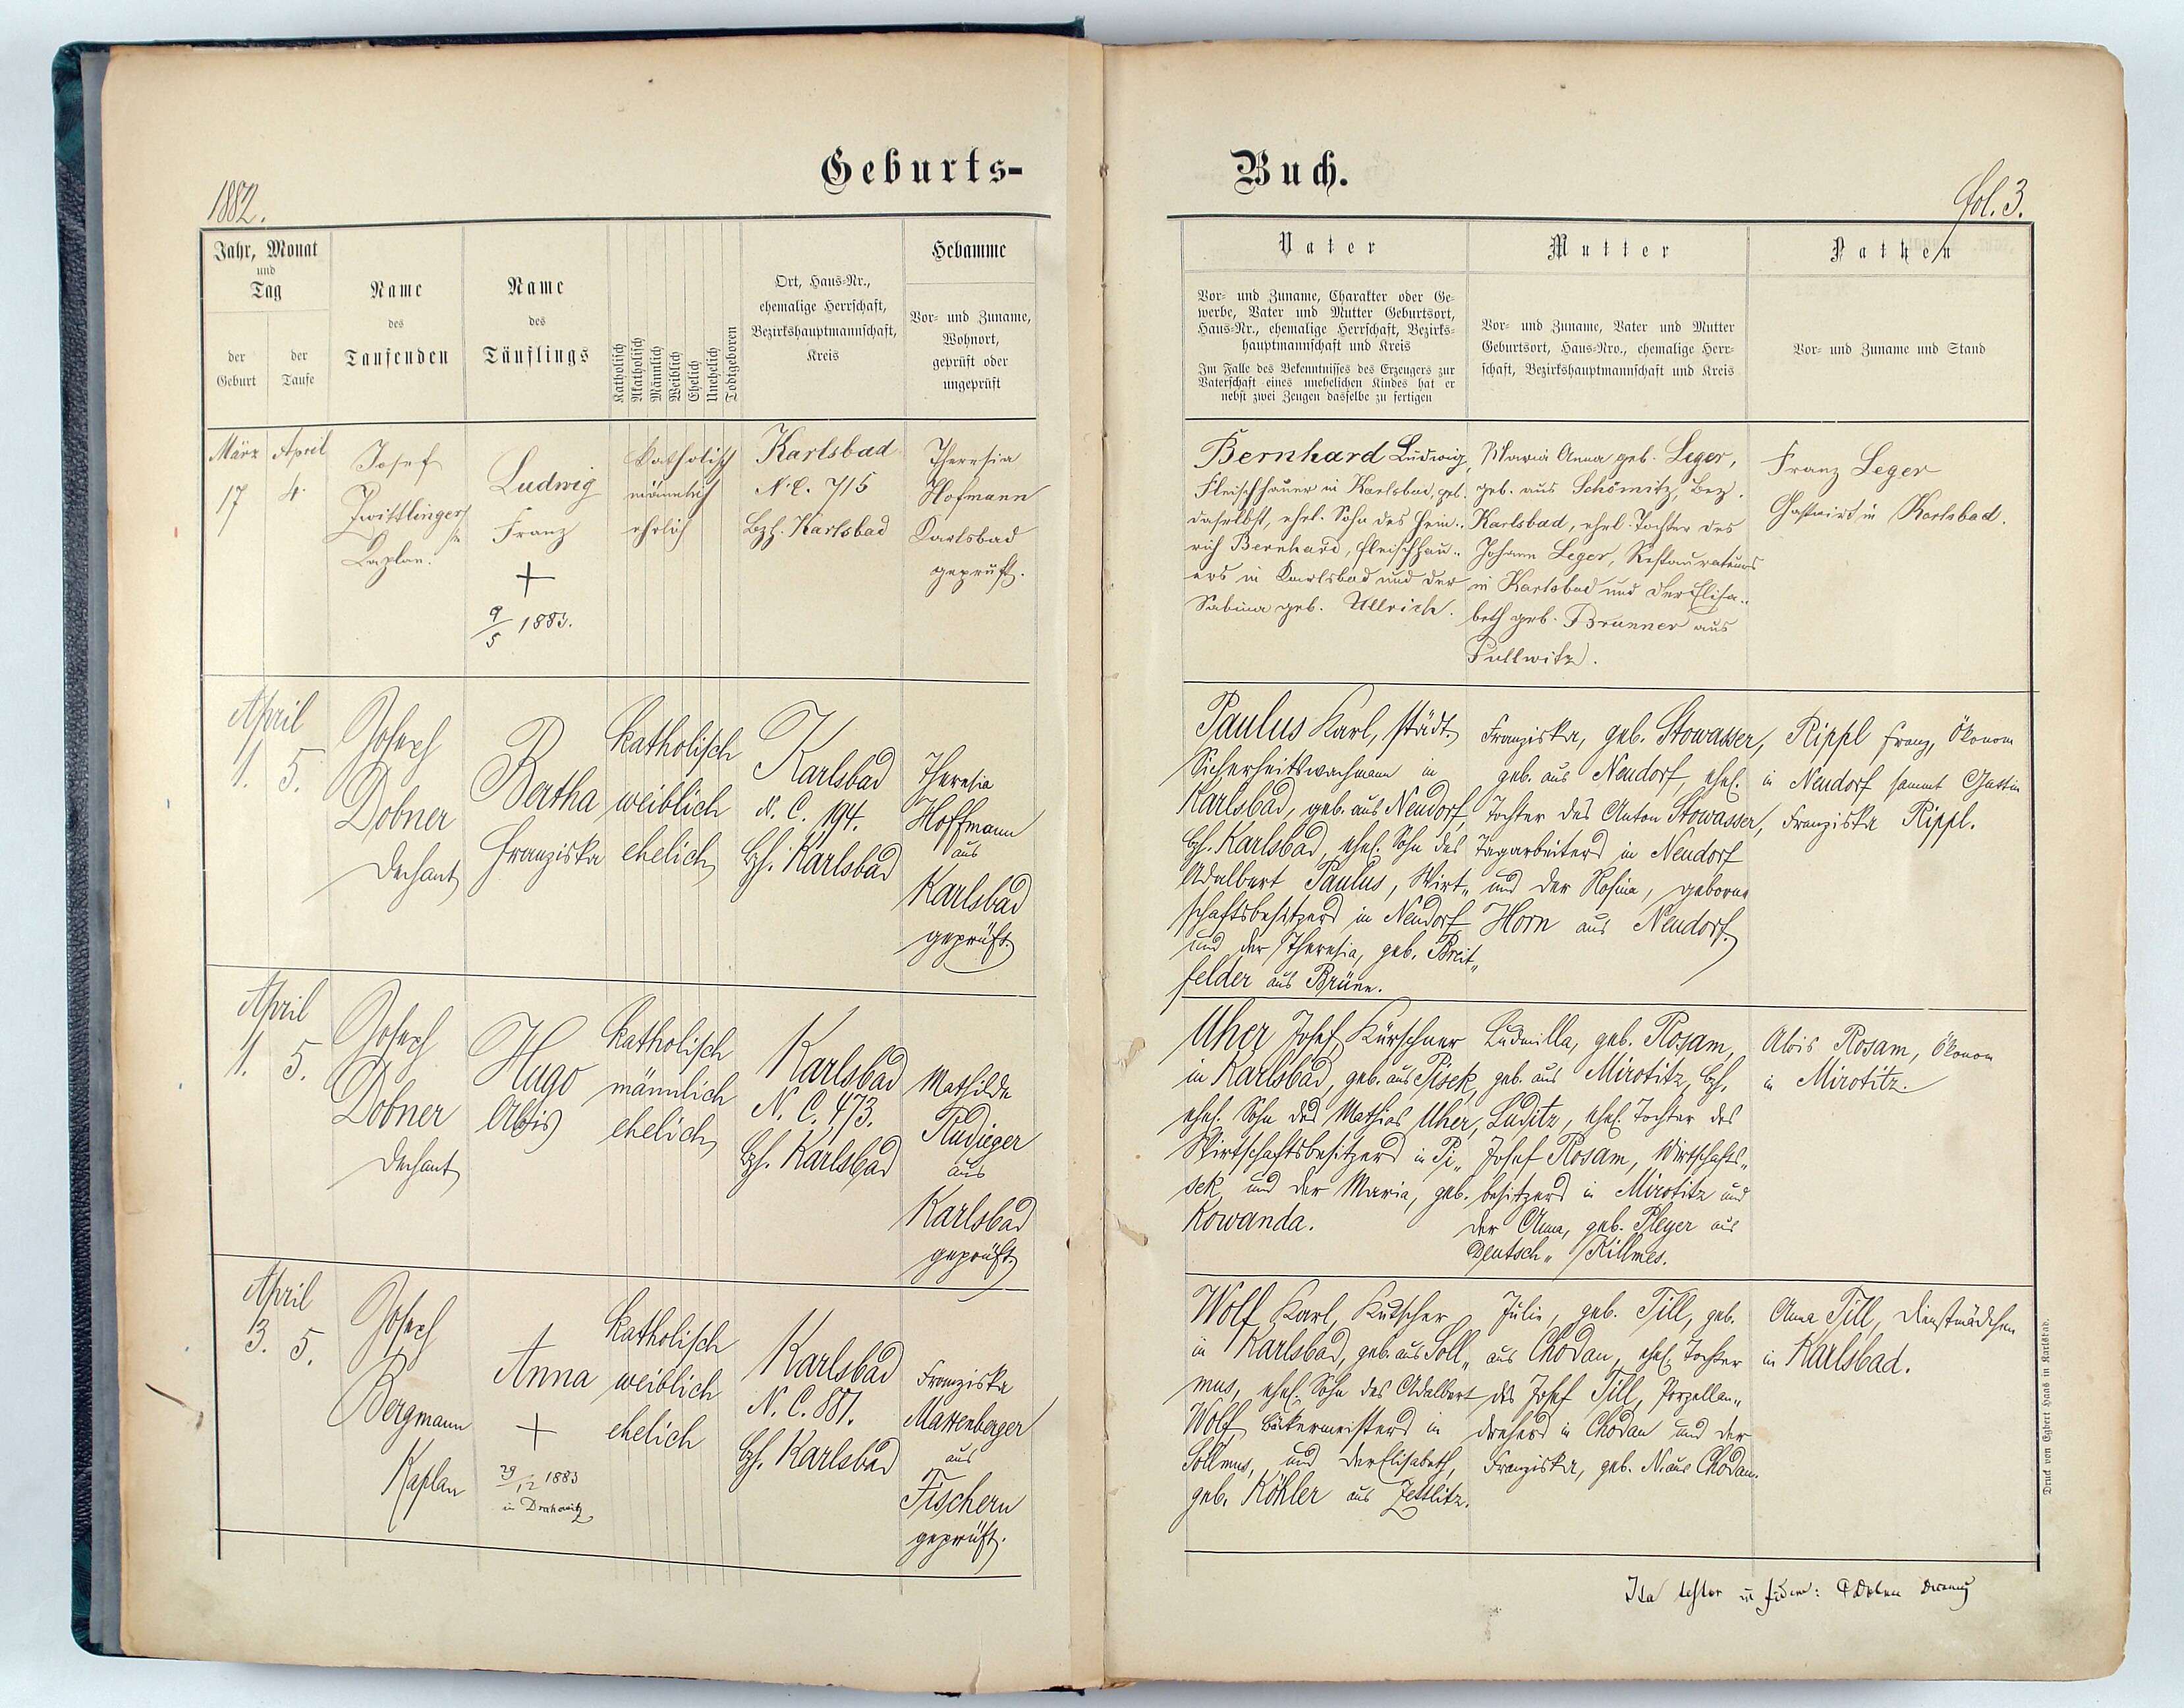 1882.
Geburts-
Jahr, Monat
und
Tag
der
Geburt
der
Taufe
Name
des
Taufenden
Name
des
Täuflings
Katholisch
Akatholisch
Männlich
Weiblich
Ehelich
Unehelich
Todtgeboren
Ort, Haus-Nr.,
ehemalige Herrschaft,
Bezirkshauptmannschaft,
Kreis
Hebamme
Vor- und Zuname,
Wohnort,
geprüft oder
ungeprüft
März
17
April
4.
Josef
Zwittlinger
Caplan.
Ludwig
Franz
+
9/5 1883.
katholisch
männlich
ehelich
Karlsbad
N. C. 715
Bzh. Karlsbad
Theresia
Hofmann
Karlsbad
geprüft.
April
1. 5.
Josef
Dobner
Dechant
Bertha
Franziska
katholisch
weiblich
ehelich
Karlsbad
N. C. 194.
Bzh. Karlsbad
Theresia
Hoffmann
aus
Karlsbad
geprüft.
April
1. 5.
Josef
Dobner
Dechant
Hugo
Alois
katholisch
männlich
ehelich
Karlsbad
N. C. 473.
Bzh. Karlsbad
Mathilde
Rudieger
aus
Karlsbad
geprüft.
April
3. 5.
Josef
Bergmann
Kaplan
Anna
+
29/12 1883
in Drahowitz
katholisch
weiblich
ehelich
Karlsbad
N. C. 881.
Bzh. Karlsbad
Franziska
Mattenberger
aus
Fischern
geprüft.
Buch.
fol. 3.
Vater
Vor- und Zuname, Charakter oder Ge-
werbe, Vater und Mutter Geburtsort,
Haus-Nr., ehemalige Herrschaft, Bezirks-
hauptmannschaft und Kreis
Im Falle des Bekenntnisses des Erzeugers zur
Vaterschaft eines unehelichen Kindes hat er
nebst zwei Zeugen dasselbe zu fertigen
Mutter
Vor- und Zuname, Vater und Mutter
Geburtsort, Haus-Nro., ehemalige Herr-
schaft, Bezirkshauptmannschaft und Kreis
Pathen
Vor- und Zuname und Stand
Bernhard Ludwig,
Fleischhauer in Karlsbad, geb.
daselbst, ehel. Sohn des Hein-
rich Bernhard, Fleischhau-
ers in Karlsbad und der
Sabina geb. Ullrich.
Maria Anna geb. Leger,
geb. aus Schömitz, Bez.
Karlsbad, ehel. Tochter des
Johann Leger, Restaurateurs
in Karlsbad und der Elisa-
beth geb. Brunner aus
Pullwitz.
Franz Leger
Gastwirt in Karlsbad.
Paulus Karl, städt.
Sicherheitswachmann in
Karlsbad, geb. aus Neudorf,
Bzh. Karlsbad, ehel. Sohn des
Adalbert Paulus, Wirt-
schaftsbesitzers in Neudorf
und der Theresia, geb. Breit-
felder aus Brünn.
Franziska, geb. Stowasser,
geb. aus Neudorf, ehel.
Tochter des Anton Stowasser,
Tagarbeiters in Neudorf
und der Rosina, geborne
Horn aus Neudorf.
Rippl Franz, Ökonom
in Neudorf sammt Gattin
Franziska Rippl.
Uher Josef, Kürschner
in Karlsbad, geb. aus Pisek,
ehel. Sohn des Mathias Uher,
Wirtschaftsbesitzers in Pi-
sek und der Maria, geb.
Kowanda.
Ludmilla, geb. Rosam,
geb. aus Mirotitz, Bzh.
Luditz, ehel. Tochter des
Josef Rosam, Wirtschafts-
besitzers in Mirotitz und
der Anna, geb. Pleyer aus
Deutsch- Killmes.
Alois Rosam, Ökonom
in Mirotitz.
Wolf Karl, Kutscher
in Karlsbad, geb. aus Soll-
mus, ehel. Sohn des Adalbert
Wolf, Bäkermeisters in
Sollmus, und der Elisabeth,
geb. Köhler aus Zettlitz.
Julie, geb. Till, geb.
aus Chodau, ehel. Tochter
des Josef Till, Porzellan-
drehers in Chodau und der
Franziska, geb. N. aus Chodau.
Anna Till, Dienstmädchen
in Karlsbad.
Druck von Egbert Haas in Karlsbad.
Ita testor